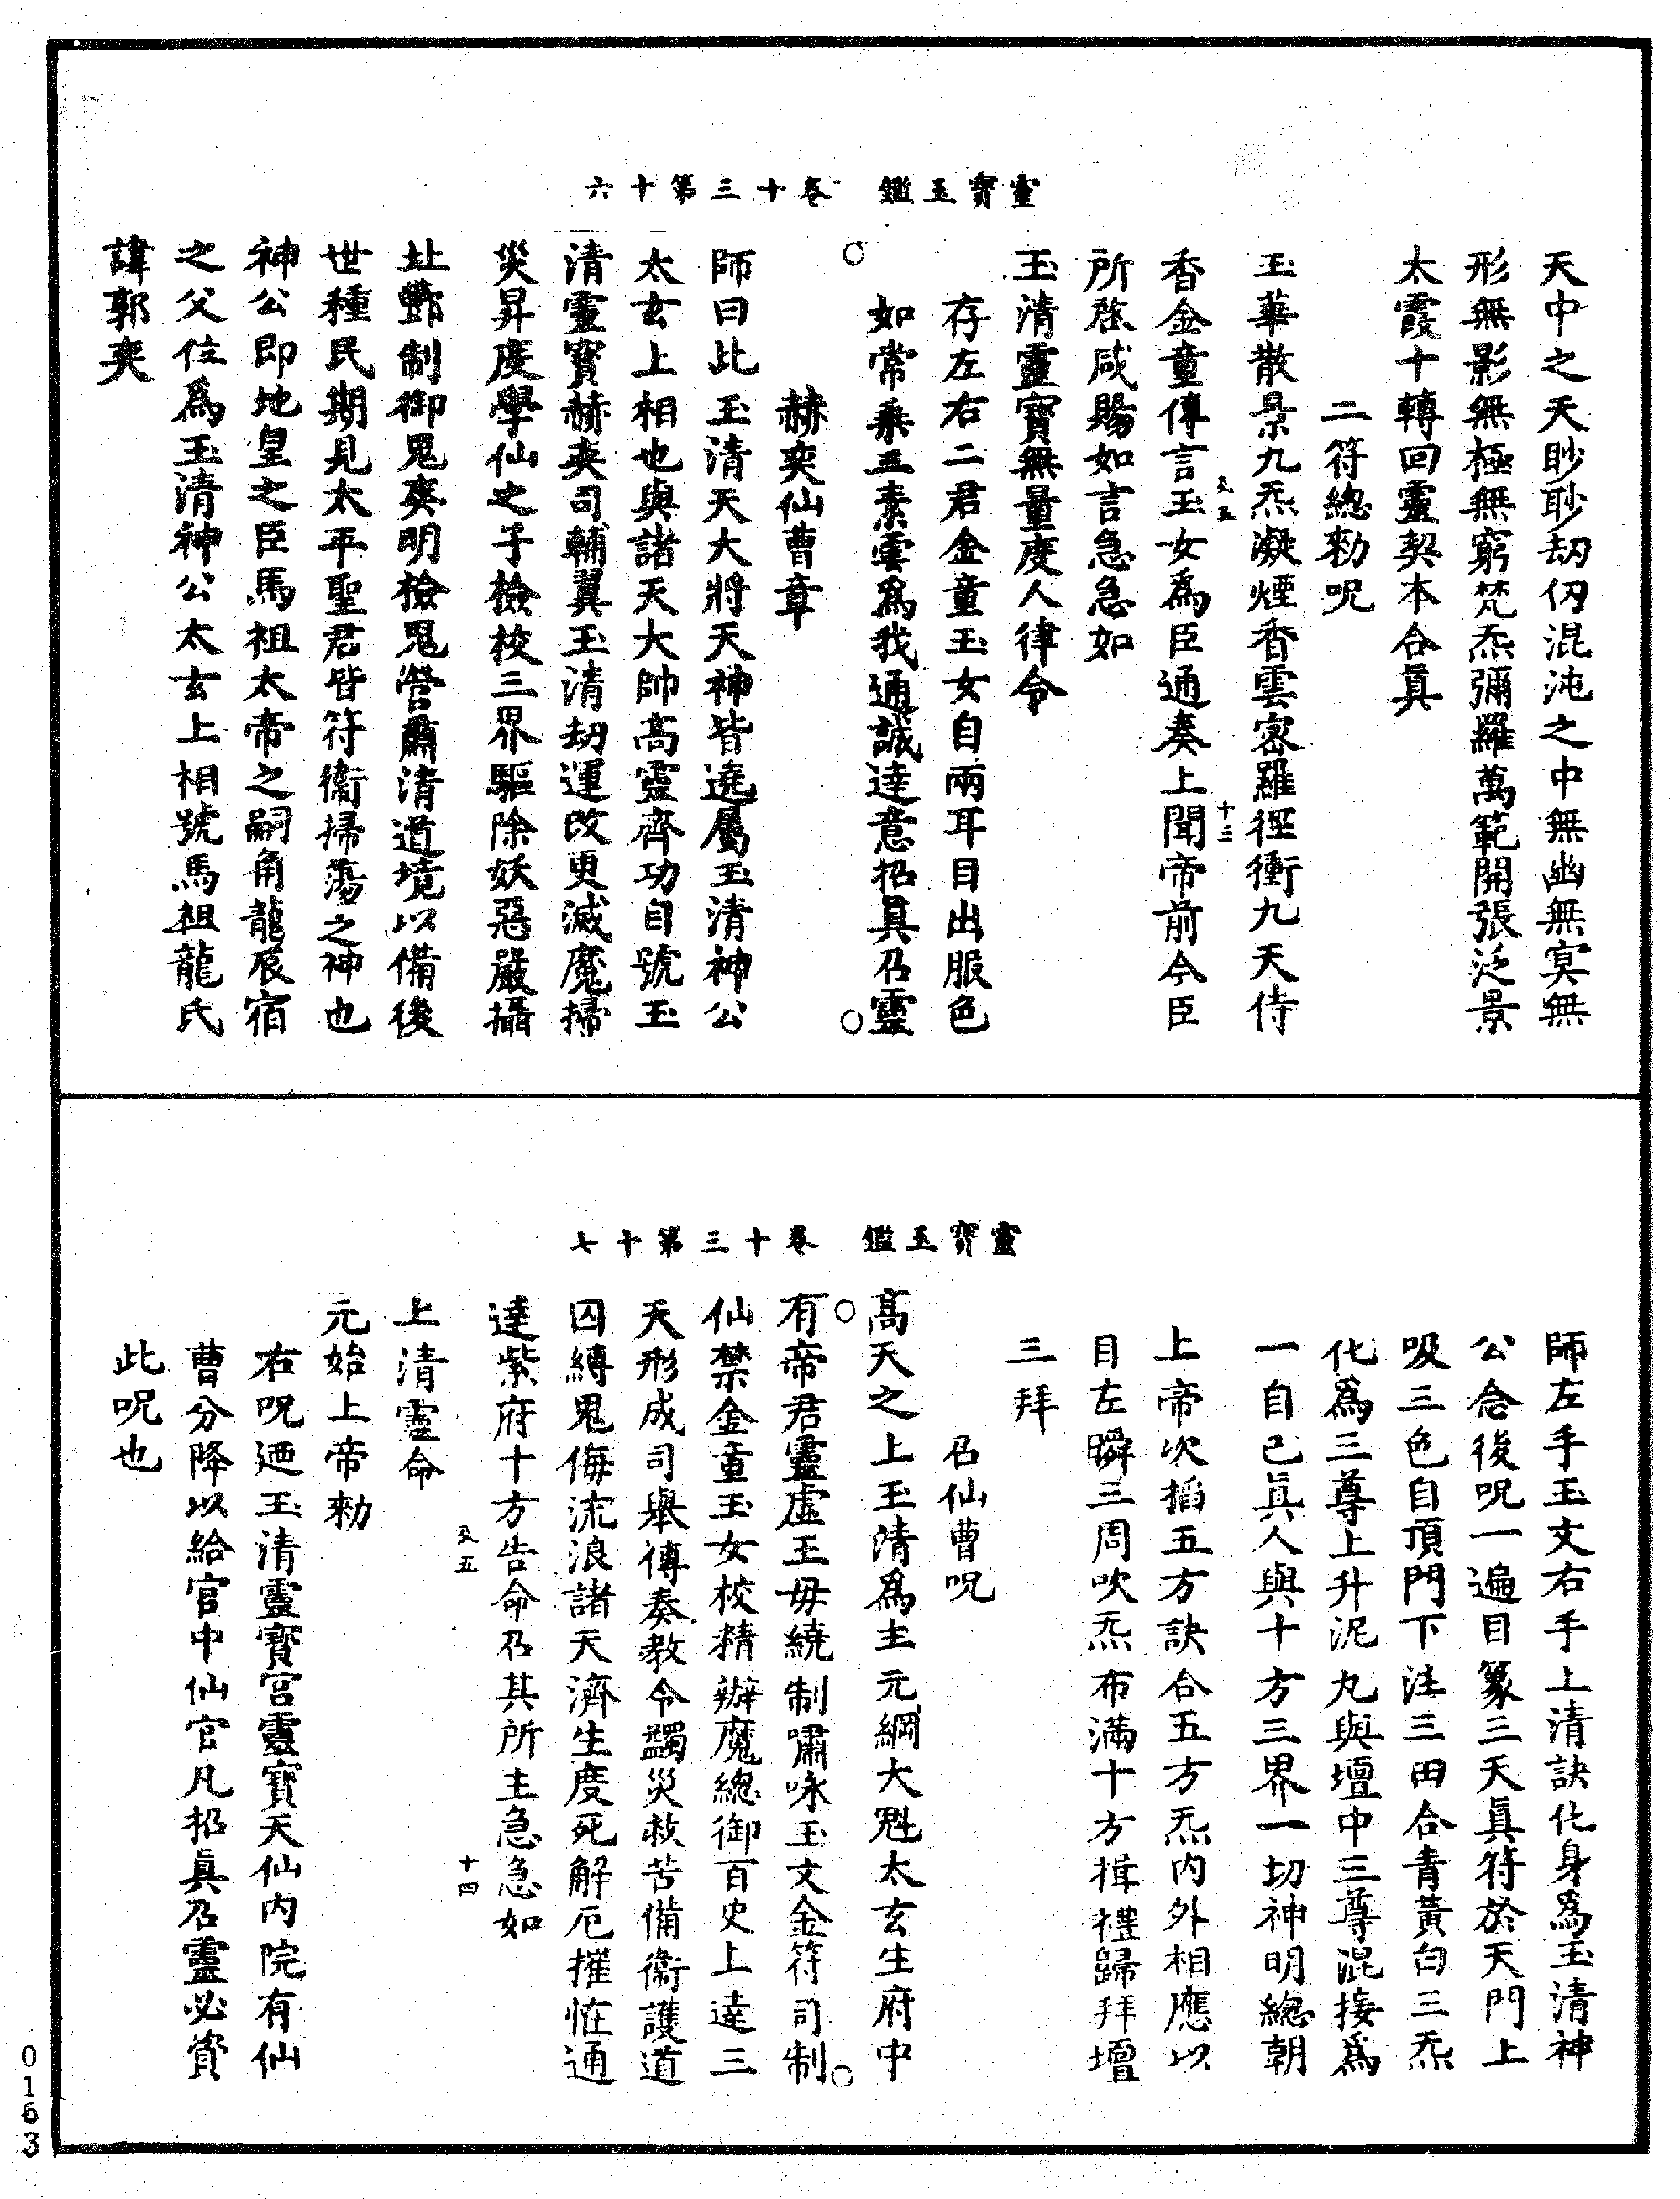 靈寶玉鑑 卷十三第十六
天中之天眇眇劫仞混沌之中無幽無冥無
形無影無極無窮梵炁彌羅萬範開張泛景
太霞十轉回靈契本合眞
二符總勑呪
玉華散景九炁凝煙香雲密羅徑衝九天侍
五 十三
香金童傳言玉女爲臣通奏上聞帝前今臣
所啓咸賜如言急急如
玉清靈寶無量度人律令
存左右二君金童玉女自兩耳目出服色
如常乘五素雲爲我通誠達意招真召靈
赫奕仙曹章
師曰此玉清天大將天神皆遶屬玉清神公
太玄上相也與諸天大帥高靈齊功自號玉
清靈寶赫奕司輔翼玉清劫運改更滅魔掃
災昇度學仙之子檢校三界驅除妖惡嚴攝
北酆制御鬼爽明檢鬼營肅清道境以備後
世種民期見太平聖君皆符衞掃蕩之神也
神公即地皇之臣馬祖太帝之嗣角龍辰宿
之父位爲玉清神公太玄上相號馬祖龍氏
諱郭奕
靈寶玉鑑 卷十三第十七
師左手玉文右手上清訣化身爲玉清神
公念後呪一遍目篆三天眞符於天門上
吸三色自頂門下注三田合青黃白三炁
化爲三尊上升泥丸與壇中三尊混接爲
一自己眞人與十方三界一切神明總朝
上帝次搯五方訣合五方炁內外相應以
目左瞬三周吹炁布滿十方揖禮歸拜壇
三拜
召仙曹呪
高天之上玉清爲主元綱大魁太玄生府中
有帝君靈虛王毋繞制嘯咏玉文金符司制
仙禁金童玉女校精辦魔總御百史上達三
天形成司舉傳奏教令蠲災救苦備衞護道
囚縛鬼侮流浪諸天濟生度死解厄摧恠通
達紫府十方告命召其所主急急如
五 十四
上清靈命
元始上帝勑
右呪迺玉清靈寶宮靈寶天仙內院有仙
曹分降以給官中仙官凡招眞召靈必資
此呪也
0163